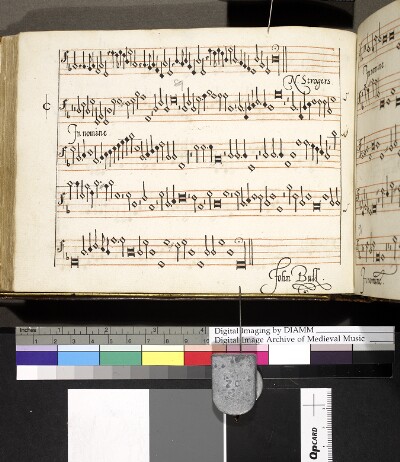 N Strogers
In nomine
John Bull.
In nomine
In nomine
Inches 1 2 4
Digital Imaging by DIAMM
Digital Image Archive of Medieval Music
QPCARD